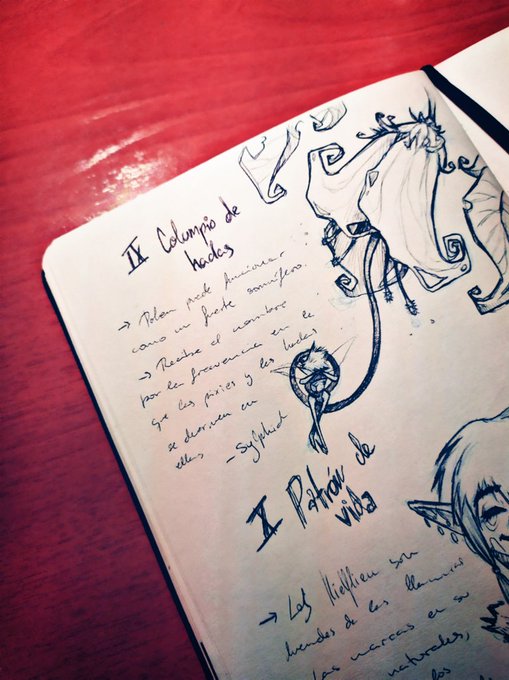 IX Columpio de
hadas
→ Polen puede funcionar
como un fuerte somnífero.
→ Recibe el nombre
por la frecuencia en la
que las pixies y las hadas
se duermen en
ellas
- Sylphid
X Patrón de
vida
→ Los son
duendes de las llamar
las marcas en su
naturales,
los